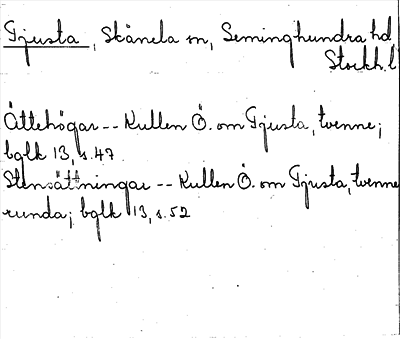 Tjusta, Skånela sn, Seminghundra hd
Stockh. l
Ättehögar -- Kullen Ö. om Tjusta, tvenne;
bglk 13, s. 47
Stensättningar -- Kullen Ö. om Tjusta, tvenne
runda; bglk 13, s. 52